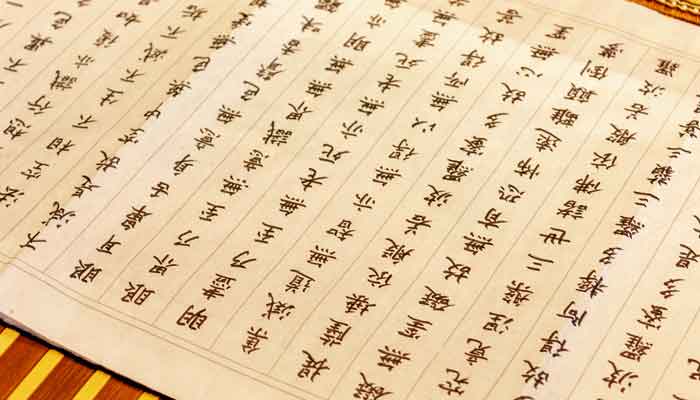 想行識亦復如
法空相不生不滅
不淨是故空中無色
眼耳鼻舌身意無色聲香味
眼界乃至無意識界無無明亦
明盡乃至無老死亦無老死盡
集滅道無智亦無得以無所得故
提薩埵依般若波羅蜜多故心無罣
礙無罣礙故無有恐怖遠離顛倒夢
究竟涅槃三世諸佛依般若
故得阿耨多羅三
羅蜜多是